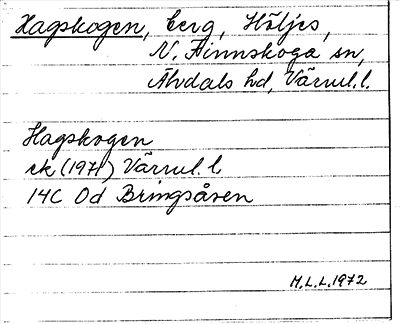 Hagskogen, berg, Höljes,
N. Finnskoga sn,
Älvdals hd, Värml.l.
Hagskogen
rk (1971) Värml. l.
14C 0d Bringsåsen
M.L.L. 1972